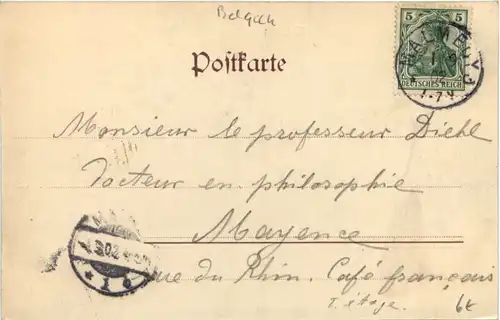 Belgien
Postkarte
5 5
DEUTSCHES REICH
MALMEDY
1-7V.
Monsieur le professeur Diehl
Docteur en philosophie
Mayence
rue du Rhin. Café français
I. étage.
6x